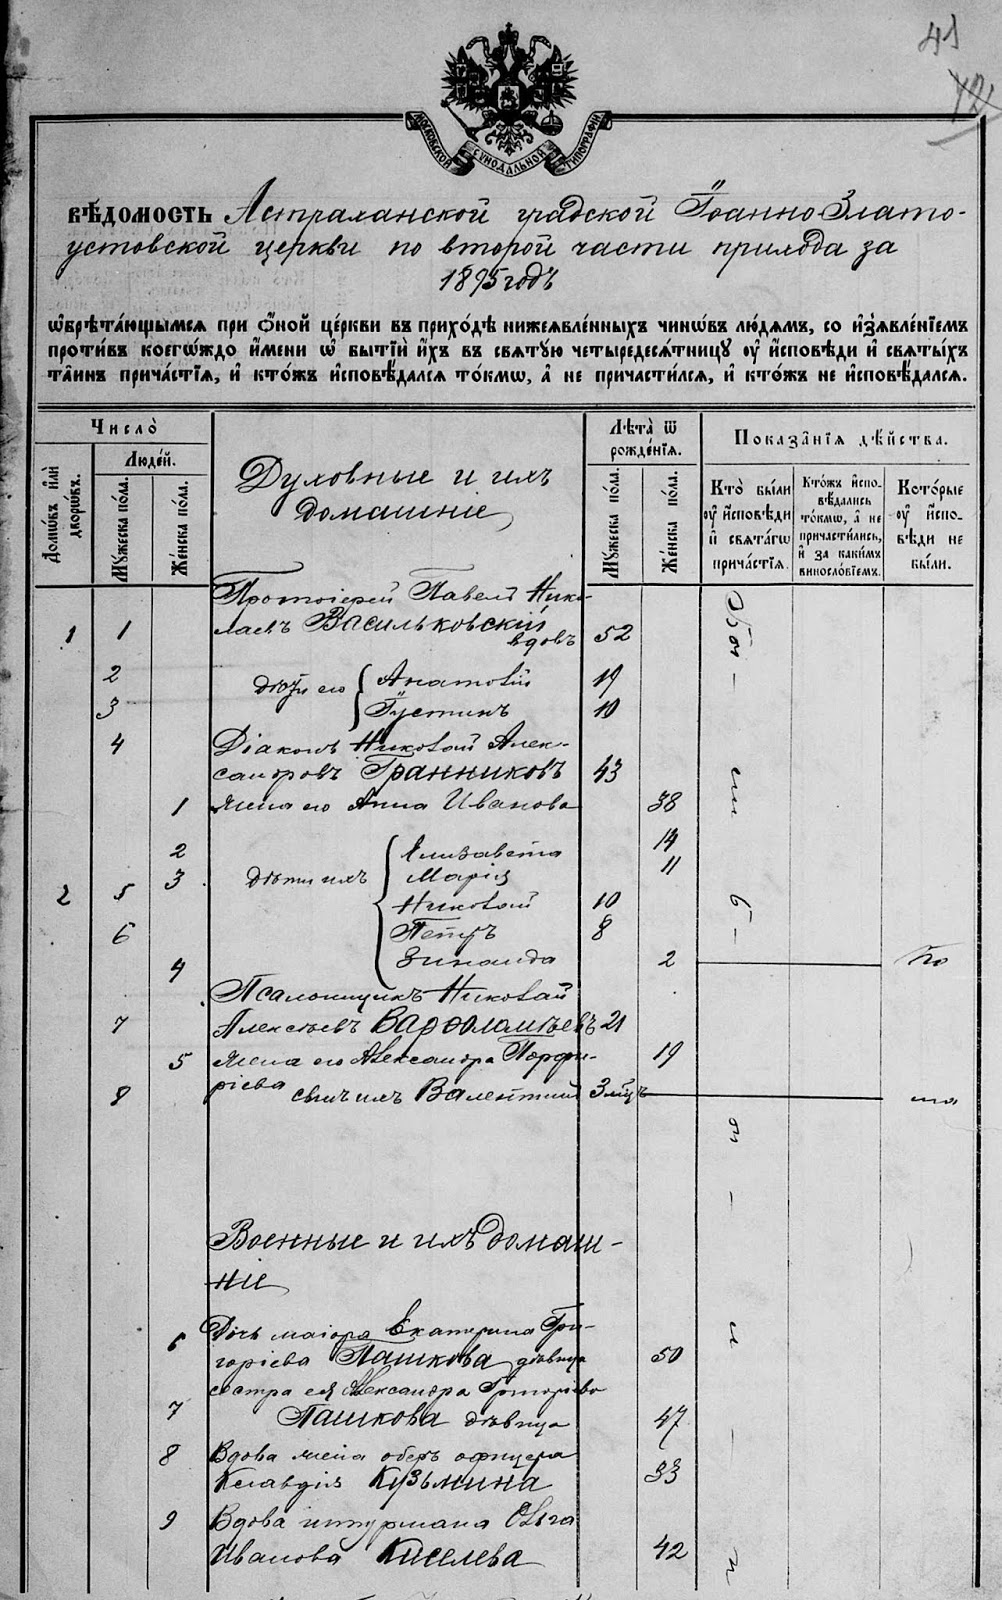 41
42
МОСКОВСКОЙ СУНОДАЛЬНОЙ ТИПОГРАФІИ
ВѢДОМОСТЬ Астраханской градской Іоанно-Злато-
устовской церкви по второй части прихода за
1895 годъ
ѡбрѣта́ющымся при ѻ҆́ной це́ркви въ прихо́дѣ нижеѧвле́нныхъ чинѡ́въ лю́демъ, со и҆з̾ѧвле́нїемъ
проти́въ коегѡ́ждо и҆́мени ѡ҆ бытїѝ и҆́хъ въ свѧту́ю четыредесѧ́тницу ᲂу҆ и҆сповѣ́ди и҆ свѧты́хъ
та̑инъ прича́стїѧ, и҆ кто́жъ и҆сповѣ́дался то́кмѡ, а҆ не причасти́лся, и҆ кто́жъ не и҆сповѣ́дался.
Число̀
Домѡ́въ и҆лѝ дворѡ́въ.
Люде́й.
Му́жеска по́ла.
Же́нска по́ла.
Духовные и ихъ
домашніе
Лѣ́та ѿ рожде́нїѧ.
Му́жеска по́ла.
Же́нска по́ла.
Показа̑нїѧ дѣ́йства.
Кто̀ бы́ли ᲂу҆ и҆сповѣ́ди и҆ свѧта́гѡ прича́стїѧ.
Кто́жъ и҆сповѣ́дались то́кмѡ, а҆ не причасти́лись, и҆ за каки́мъ винослові́емъ.
Кото́рые ᲂу҆ и҆сповѣ́ди не бы́ли.
Протоіерей Павелъ Нико-
1 1 лаевъ Васильковскій вдовъ 52
2 дѣти его Анатолій 19
3 Іустинъ 10
4 Діаконъ Николай Алек-
сандровъ Гранниковъ 43
1 жена его Анна Иванова 38
2 дѣти ихъ Елизавета 14
3 Марія 11
2 5 Николай 10
6 Петръ 8
4 Зинаида 2
Псаломщикъ Николай
7 Алексѣевъ Варѳоломѣевъ 21
5 жена его Александра Порфи- 19
8 рієва сынъ ихъ Валентинъ 3 мѣц
Военные и ихъ домаш-
ніе
6 Дочь маіора Екатерина Гри-
горіева Пашкова дѣвица 50
сестра ея Александра Григоріева
7 Пашкова дѣвица 47
8 Вдова жена оберъ офицера
Клавдія Кузьмина 33
9 Вдова штурмана Ольга
Иванова Киселева 42